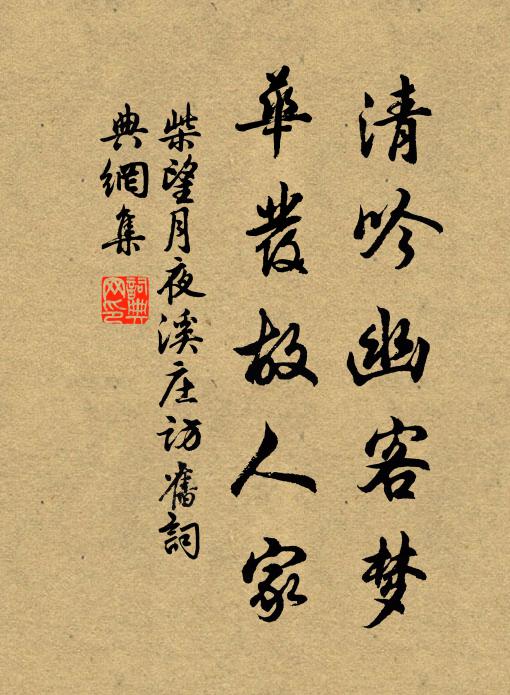 清吟幽客梦
華發故人家
柴望月夜溪庄访舊詞
典網集
詞典网印